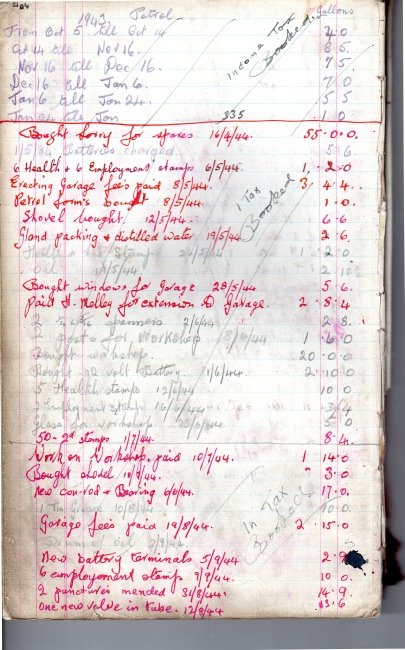 1943 Petrol Gallons
From Oct 5 till Oct 14 20
Oct 14 till Nov 16. 85
Nov 16 till Dec 16. 75
Dec 16 till Jan 6. 70
Jan 6 till Jan 24. 55
Jan 24 till Jan 335 10
Income Tax Booked.
Bought lorry for spares 16/4/44. 55.0.0.
1/5/44 Batteries charged 5.6
6 Health & 6 Employment stamps 6/5/44. 1, 2.0
Erecting Garage fees paid 8/5/44. 3. 4.4.
Petrol form's bought 8/5/44. 1.0.
I Tax Booked
Shovel bought. 12/5/44. 6.6
Gland packing & distilled water 19/5/44. 2.6.
1 2.0
Oil
Bought windows for Garage 28/5/44 5.6.
Paid H. Melley for extension to Garage. 2.8.4
2 spanners 2/6/44 2 8.
2 posts for Workshop 1 6.0
Bought workshop. 20 0.0
Bought 12 volt Battery. 1/6/44. 2.10 0
5 Health stamps 10 0
Employment stamps 16/6/44
Glass for workshop 5 0
50-2d stamps 1/7/44. 8.4.
Work on Workshop paid 10/7/44. 1 14.0
Bought shovel 3.0
New con-rod & Bearing 17.0.
10/8/44
Garage fees paid 19/8/44. 2.15.0
In Tax Booked
Drum of oil 2/9/44.
New battery terminals 5/9/44 2.9
6 employement stamps 9/9/44. 10 0.
2 punctures mended 31/8/44. 14.9
One new valve in tube. 12/9/44 13.6